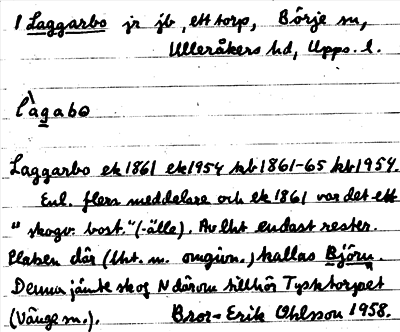 1 Laggarbo jr jb, ett torp, Börje sn,
Ulleråkers hd, Upps. l.
làgabo
Laggarbo ek 1861 ek 1954 hb 1861-65 kb 1954.
Enl. flera meddelare och ek 1861 var det ett
"skogv. bost." (-älle). Av lht endast rester.
Platsen där (lht. m. omgivn.) kallas Björn.
Denna jämte skog N därom tillhör Tysktorpet
(Vänge sn.). Bror-Erik Ohlsson 1958.